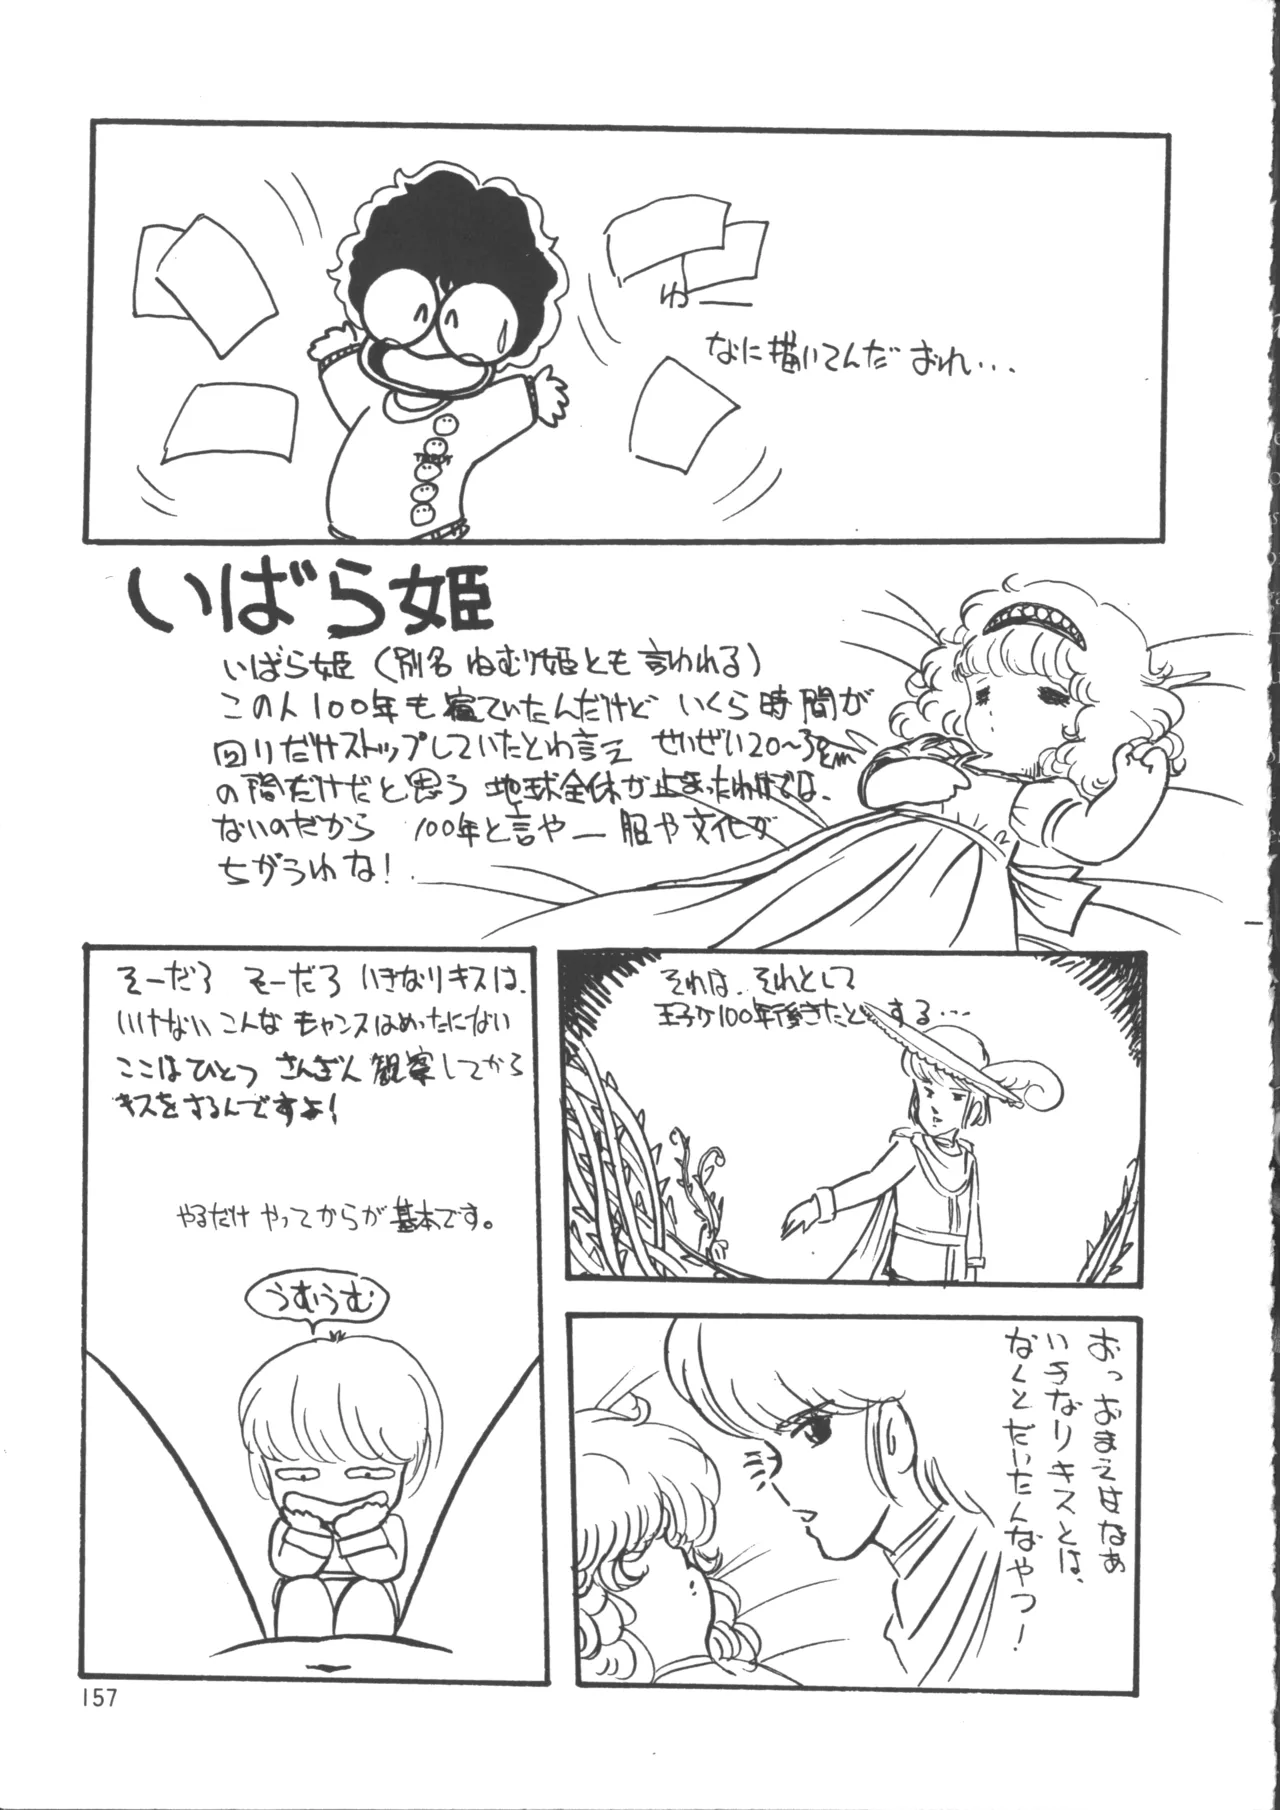 わ——
なに描いてんだ おれ・・・
TAROT
いばら姫
いばら姫（別名 ねむり姫とも言われる）
この人100年も寝ていたんだけど いくら時間が
回りだけストップしていたとわ言え せいぜい20〜30cm
の間だけだと思う 地球全体が止まったわけでは、
ないのだから 100年と言や― 服や文化が
ちがうわな！
それは、それとして
王子が100年後きたと する・・・
おっおまえはなぁ
いきなりキスとは、
なんとだいたんなやつ！
そーだろ そーだろ いきなりキスは、
いけない こんな チャンスはめったにない
ここはひとつ さんざん 観察してから
キスをするんですよ！
やるだけ やってからが 基本です。
うむうむ
157